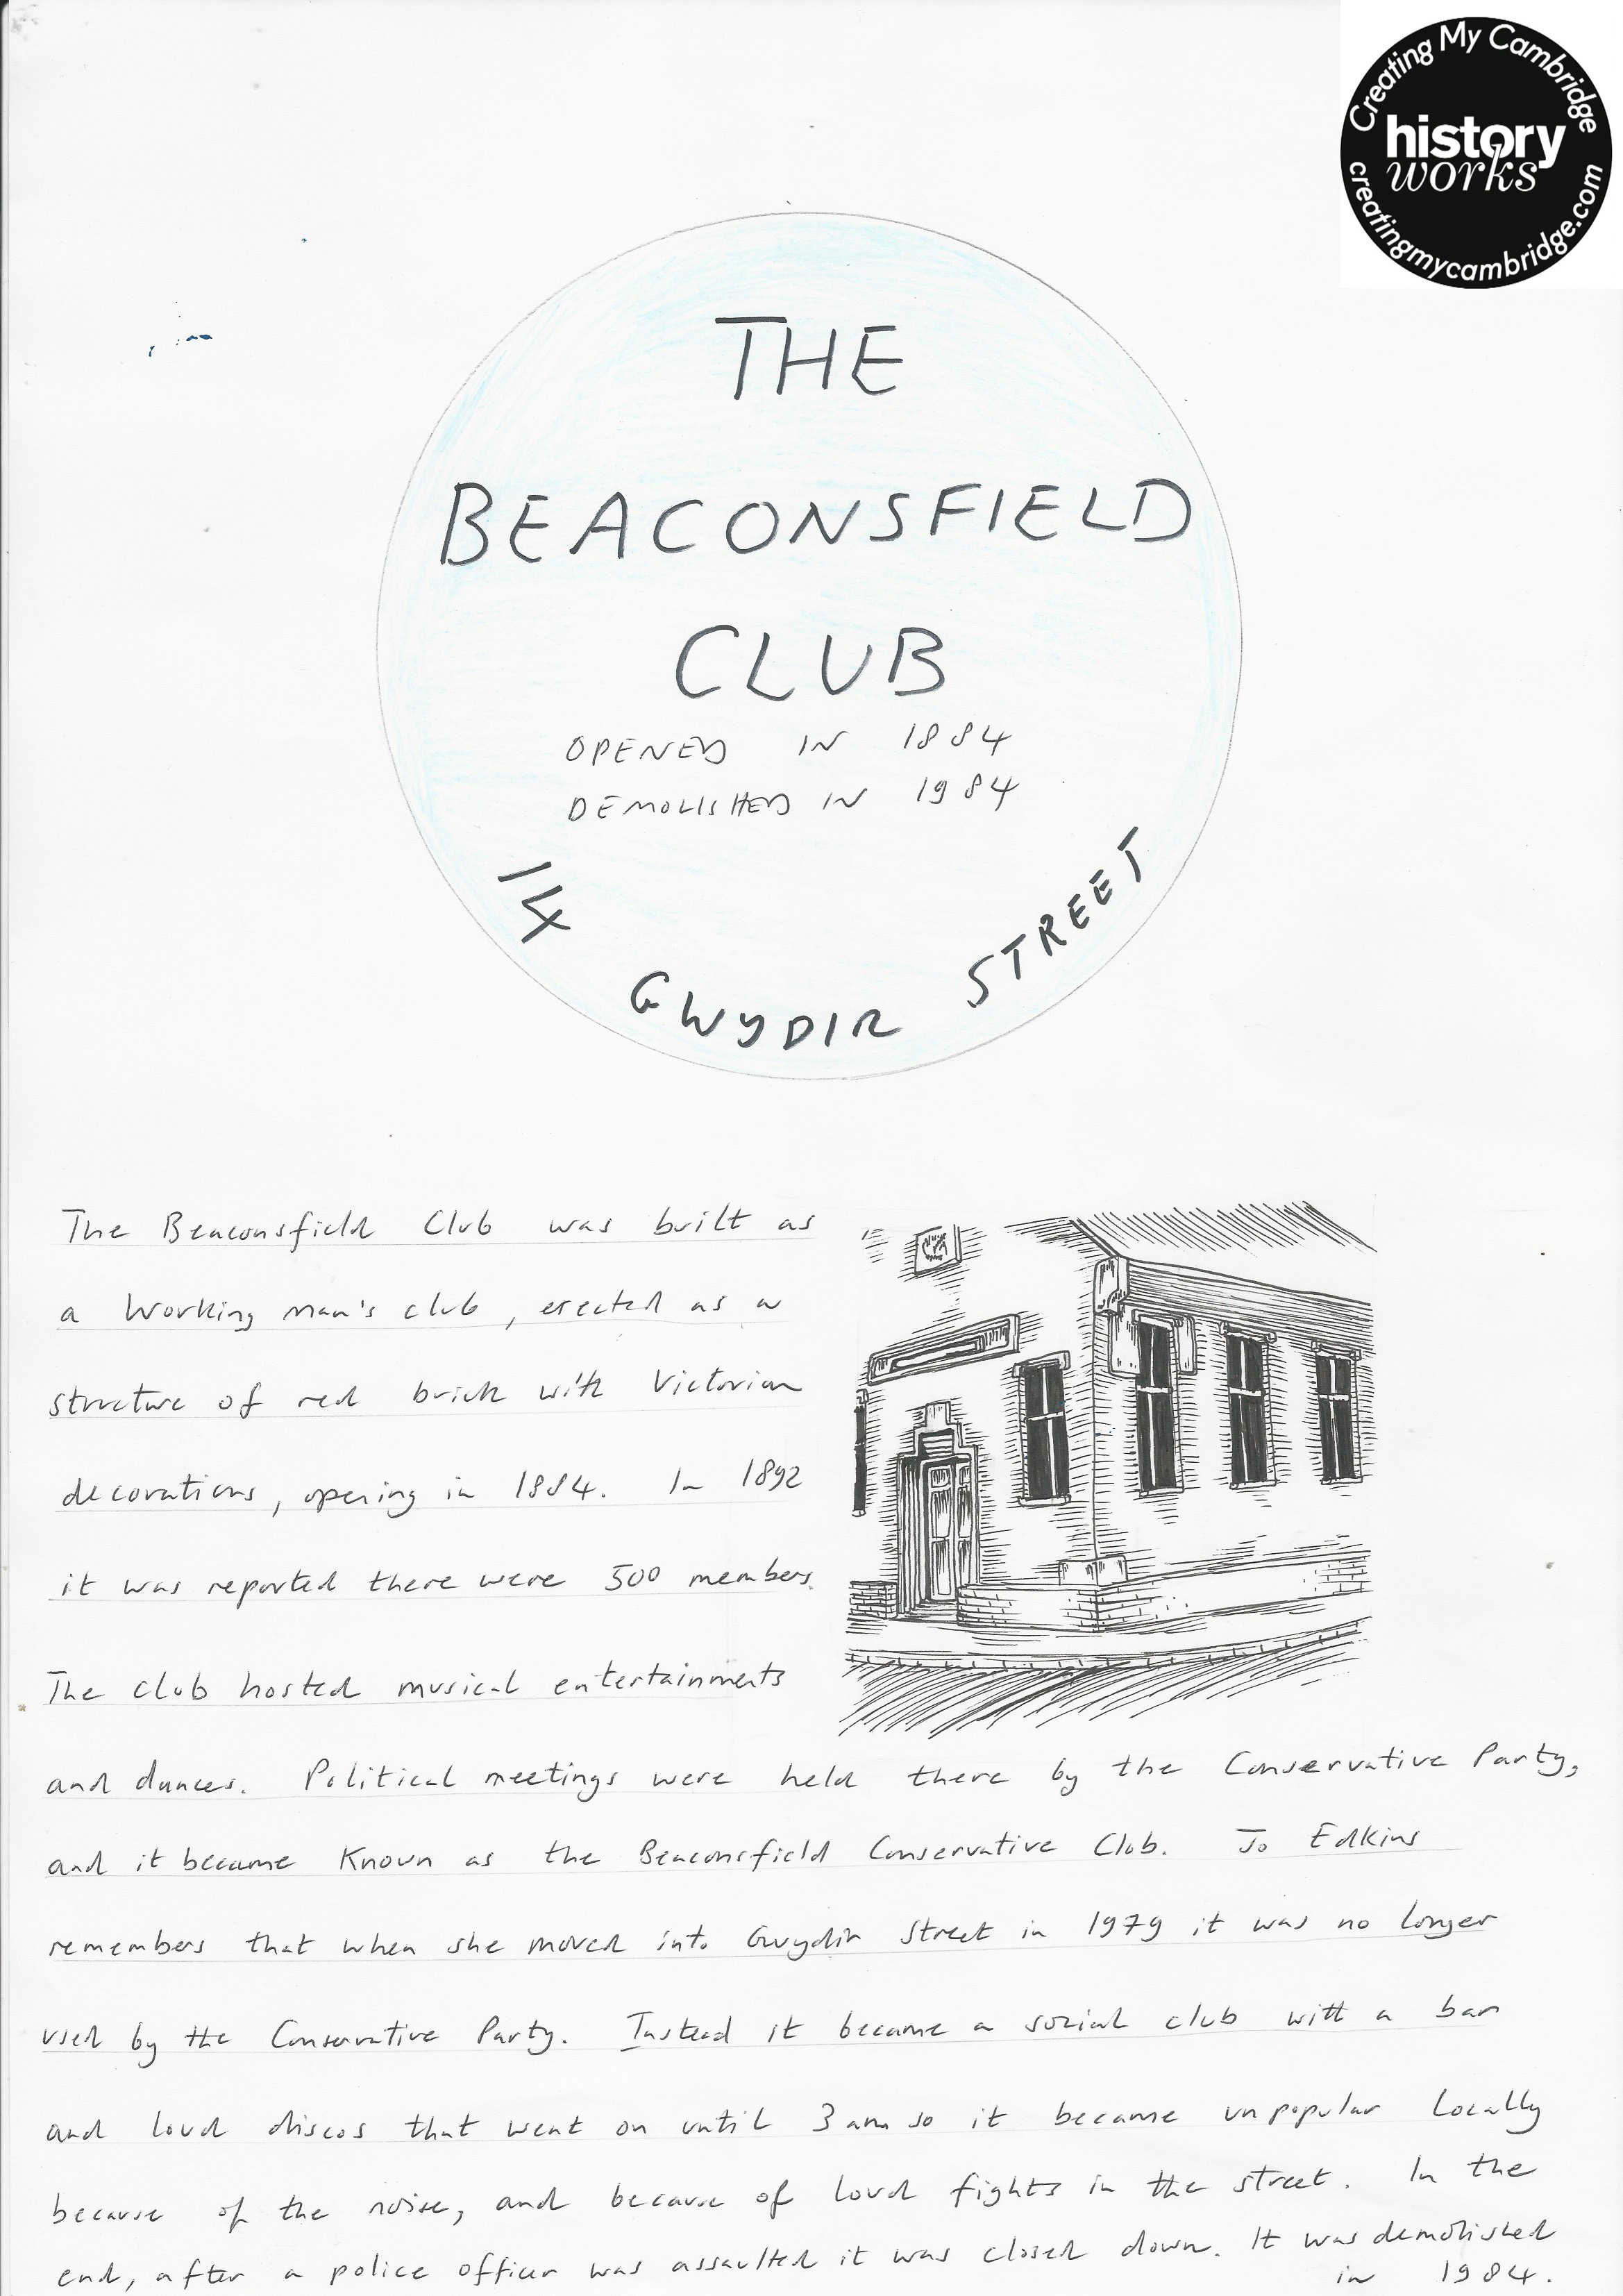 Creating My Cambridge
history
works
creatingmycambridge.com
THE
BEACONSFIELD
CLUB
OPENED IN 1884
DEMOLISHED IN 1984
14 GWYDIR STREET
The Beaconsfield Club was built as
a Working man's club, erected as a
structure of red brick with Victorian
decorations, opening in 1884. In 1892
it was reported there were 500 members.
The club hosted musical entertainments
and dances. Political meetings were held there by the Conservative Party,
and it became known as the Beaconsfield Conservative Club. Jo Edkins
remembers that when she moved into Gwydir Street in 1979 it was no longer
used by the Conservative Party. Instead it became a social club with a bar
and loud discos that went on until 3am so it became unpopular locally
because of the noise, and because of loud fights in the street. In the
end, after a police officer was assaulted it was closed down. It was demolished
in 1984.